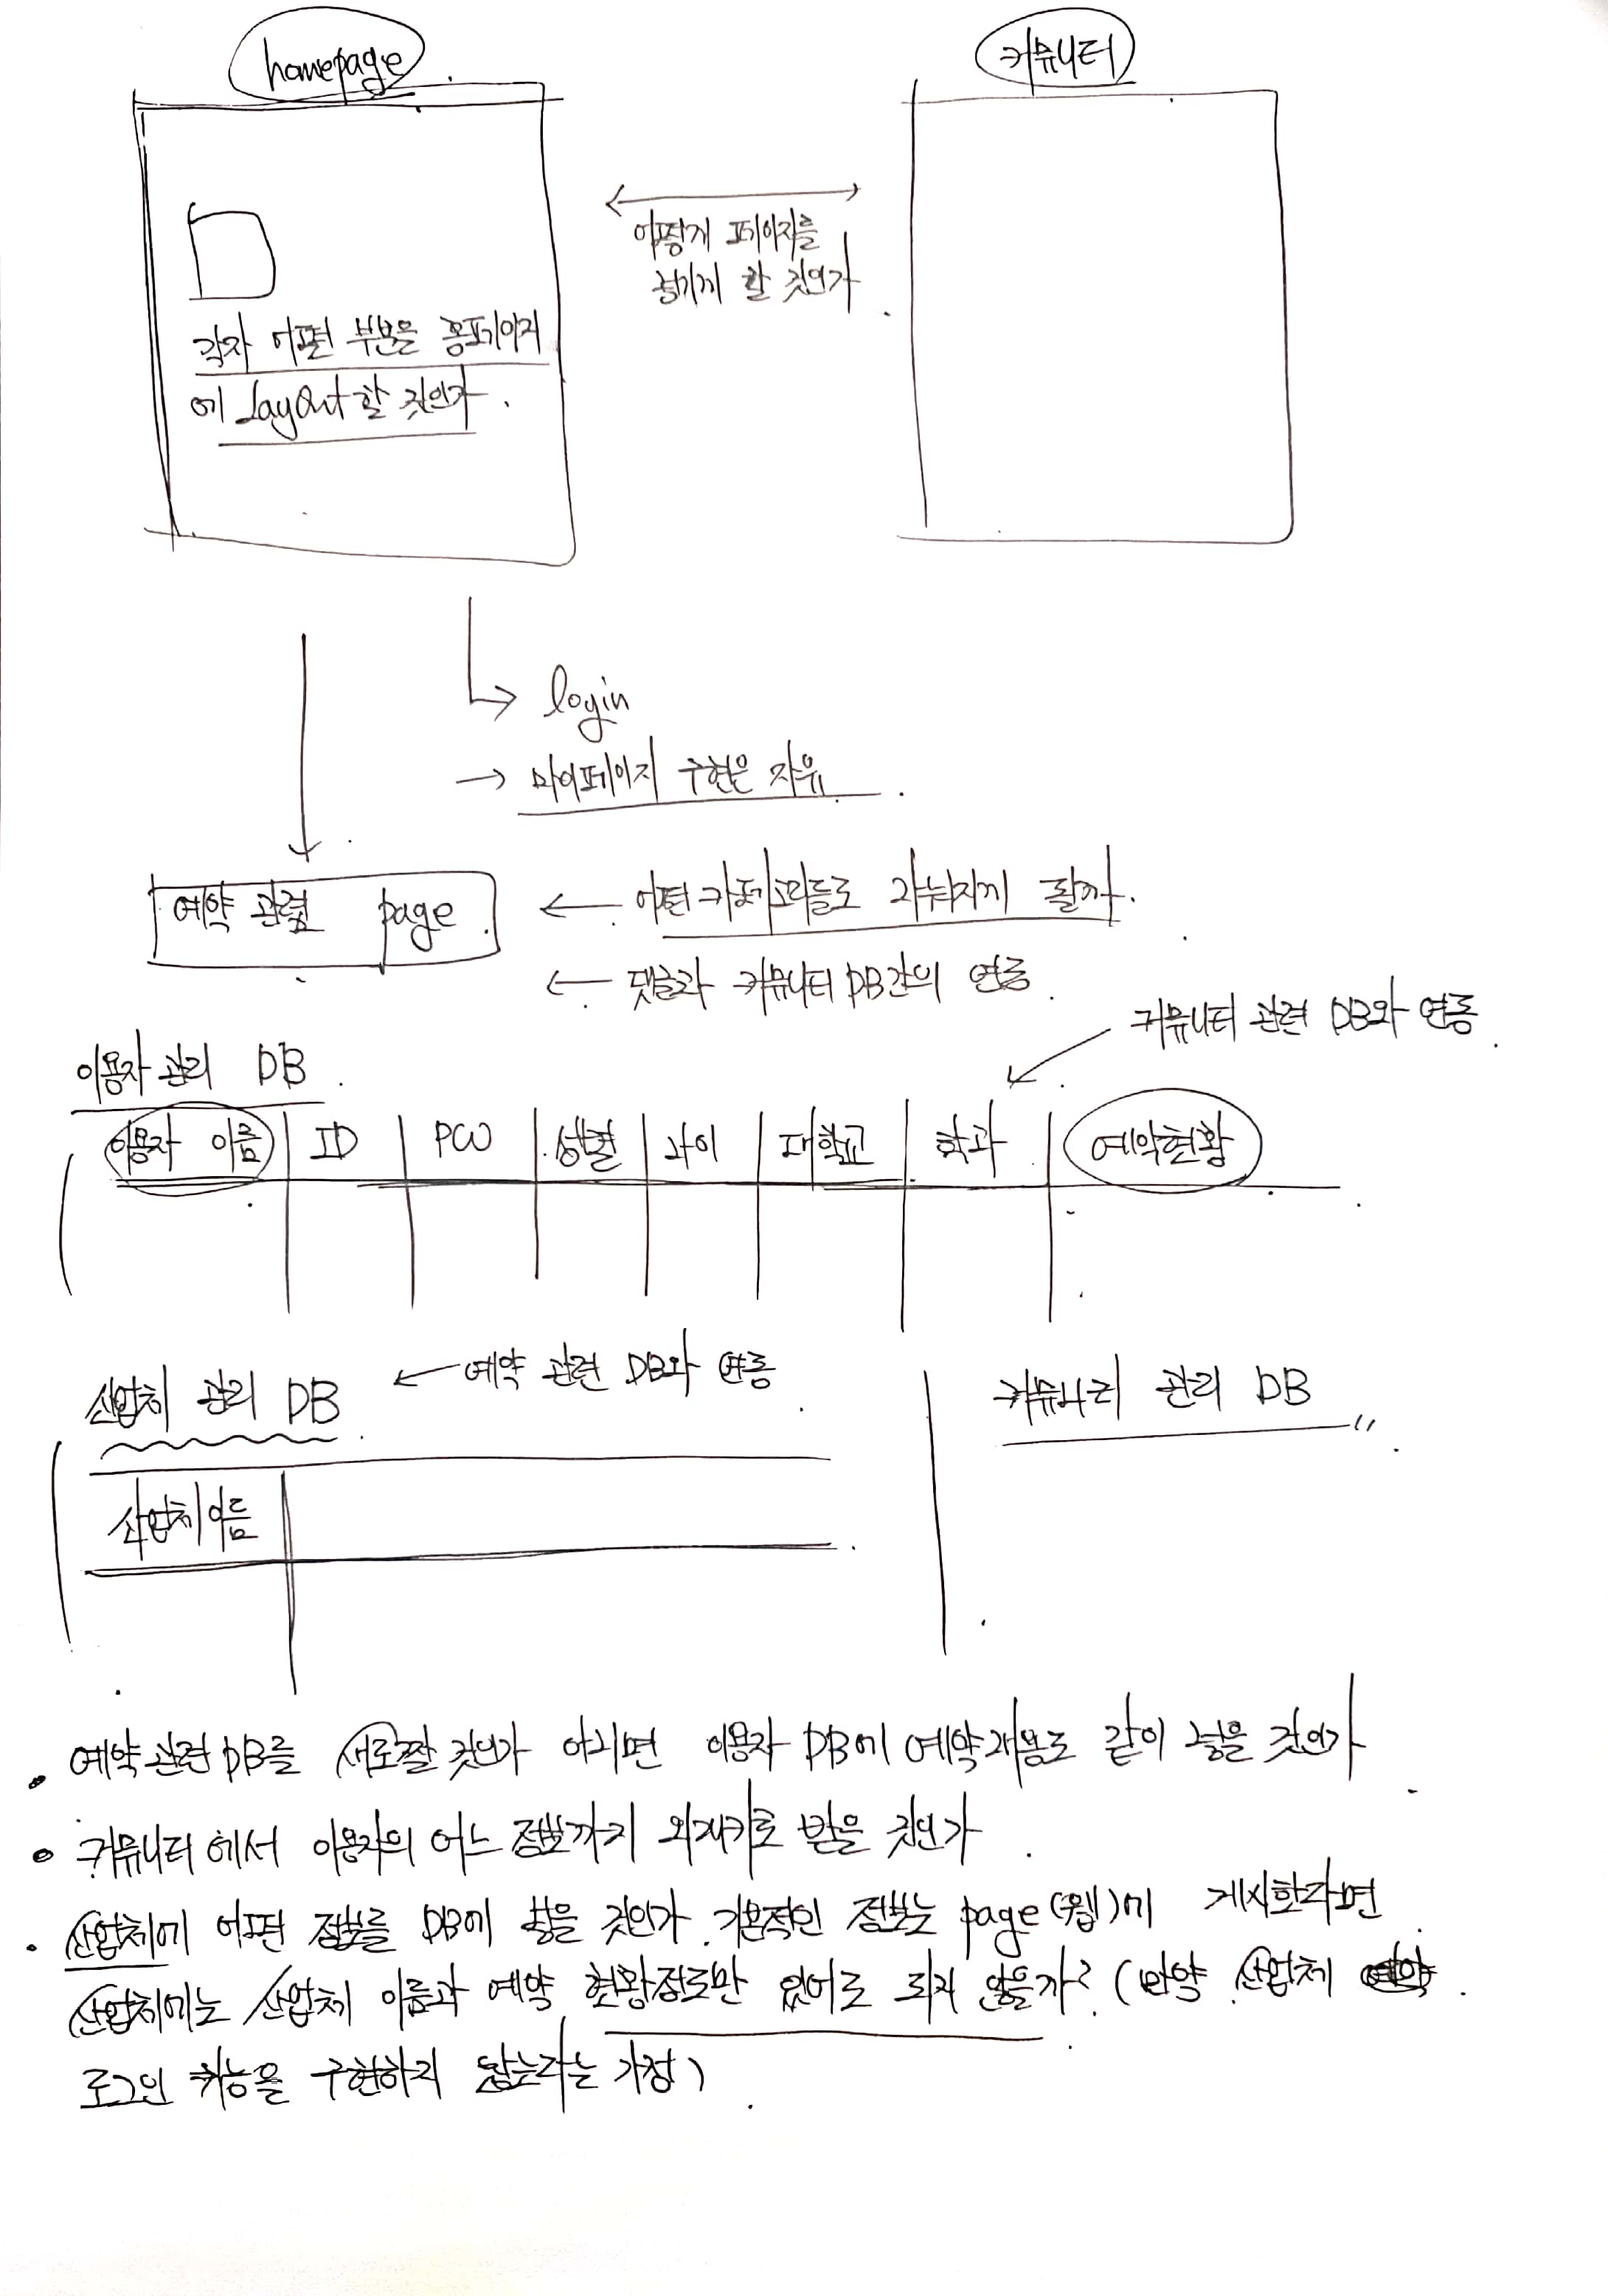 homepage
커뮤니터
어떻게 페이지를
넘기게 할 것인가
각자 어떤 부분을 홈페이지
에 layout 할 것인가.
login
→ 마이페이지 구현은 자유.
예약 관련 page
← 어떤 카테고리들로 나눠지게 할까.
← 댓글과 커뮤니터 DB간의 연동
커뮤니터 관련 DB와 연동
이용자 관리 DB
이용자 이름 ID PW 성별 나이 대학교 학과 예약현황
산업체 관리 DB
← 예약 관련 DB와 연동
커뮤니티 관리 DB
산업체이름
• 예약 관련 DB를 새로짤 것인가 아니면 이용자 DB에 예약내용도 같이 넣을 것인가
• 커뮤니터에서 이용자의 어느 정보까지 외래키로 받을 것인가
• 산업체에 어떤 정보를 DB에 넣을 것인가. 기본적인 정보는 page(웹)에 게시한다면
산업체에는 산업체 이름과 예약 현황정도만 있어도 되지 않을까? (만약 산업체
로그인 기능을 구현하지 않는다는 가정)